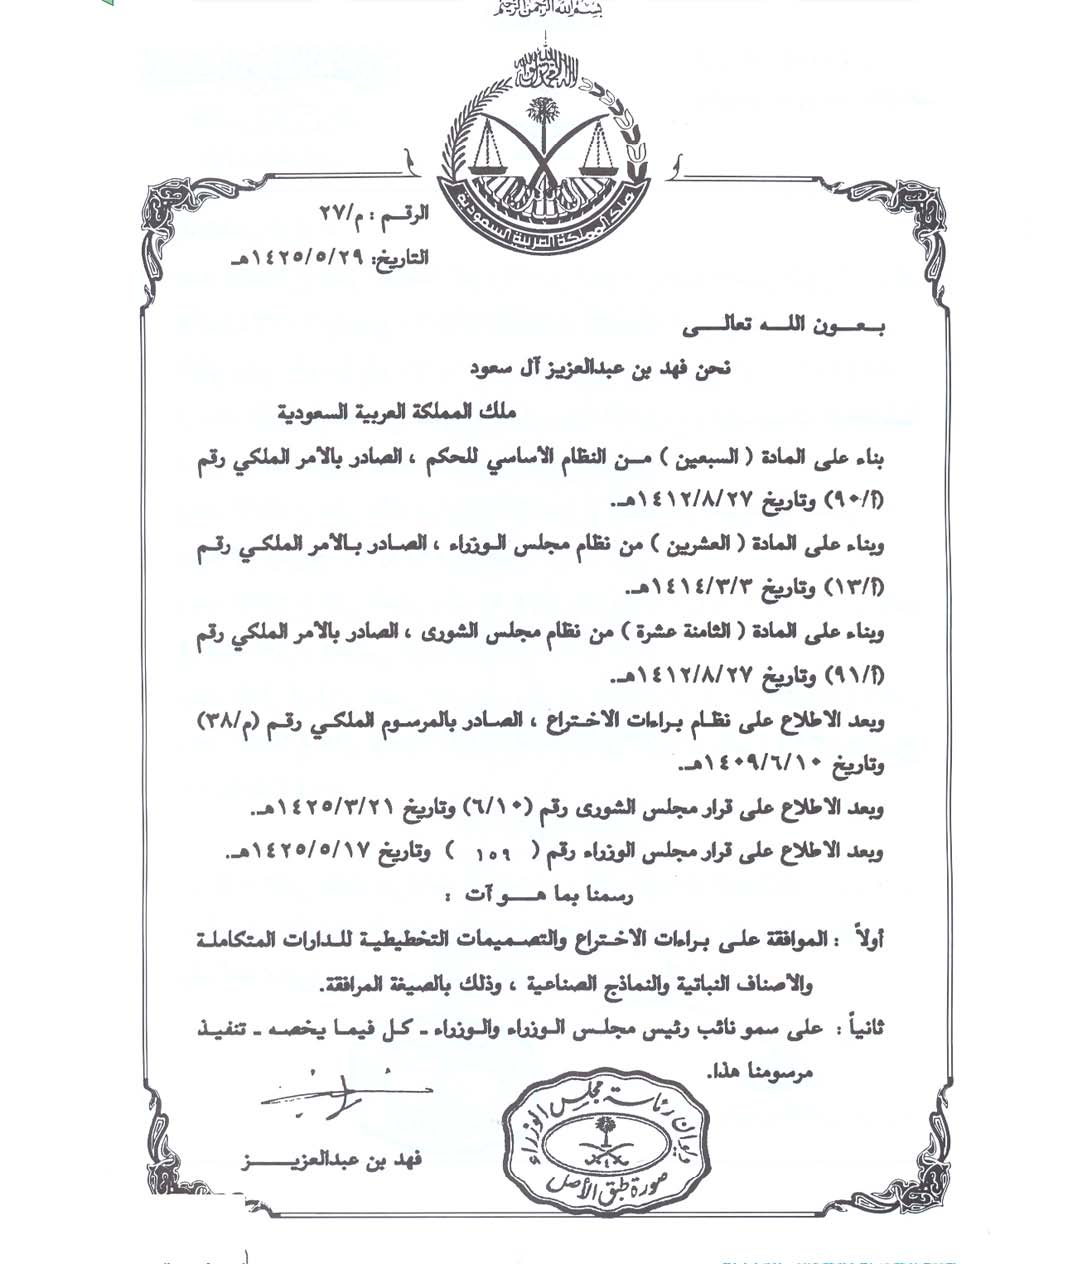 بسم الله الرحمن الرحيم
لا إله إلا الله محمد رسول الله
ملك المملكة العربية السعودية
الرقم : م/٢٧
التاريخ: ١٤٢٥/٥/٢٩هـ
بعون الله تعالى
نحن فهد بن عبدالعزيز آل سعود
ملك المملكة العربية السعودية
بناء على المادة ( السبعين ) من النظام الأساسي للحكم ، الصادر بالأمر الملكي رقم
(أ/٩٠) وتاريخ ١٤١٢/٨/٢٧هـ.
وبناء على المادة ( العشرين ) من نظام مجلس الوزراء ، الصادر بالأمر الملكي رقم
(أ/١٣) وتاريخ ١٤١٤/٣/٣هـ.
وبناء على المادة ( الثامنة عشرة ) من نظام مجلس الشورى ، الصادر بالأمر الملكي رقم
(أ/٩١) وتاريخ ١٤١٢/٨/٢٧هـ.
وبعد الاطلاع على نظام براءات الاختراع ، الصادر بالمرسوم الملكي رقم (م/٣٨)
وتاريخ ١٤٠٩/٦/١٠هـ.
وبعد الاطلاع على قرار مجلس الشورى رقم (٦/١٠) وتاريخ ١٤٢٥/٣/٢١هـ.
وبعد الاطلاع على قرار مجلس الوزراء رقم ( ١٥٩ ) وتاريخ ١٤٢٥/٥/١٧هـ.
رسمنا بما هو آت :
أولاً : الموافقة على براءات الاختراع والتصميمات التخطيطية للدارات المتكاملة
والأصناف النباتية والنماذج الصناعية ، وذلك بالصيغة المرافقة.
ثانياً : على سمو نائب رئيس مجلس الوزراء والوزراء ـ كل فيما يخصه ـ تنفيذ
مرسومنا هذا.
ديوان رئاسة مجلس الوزراء
صورة طبق الأصل
فهد بن عبدالعزيز